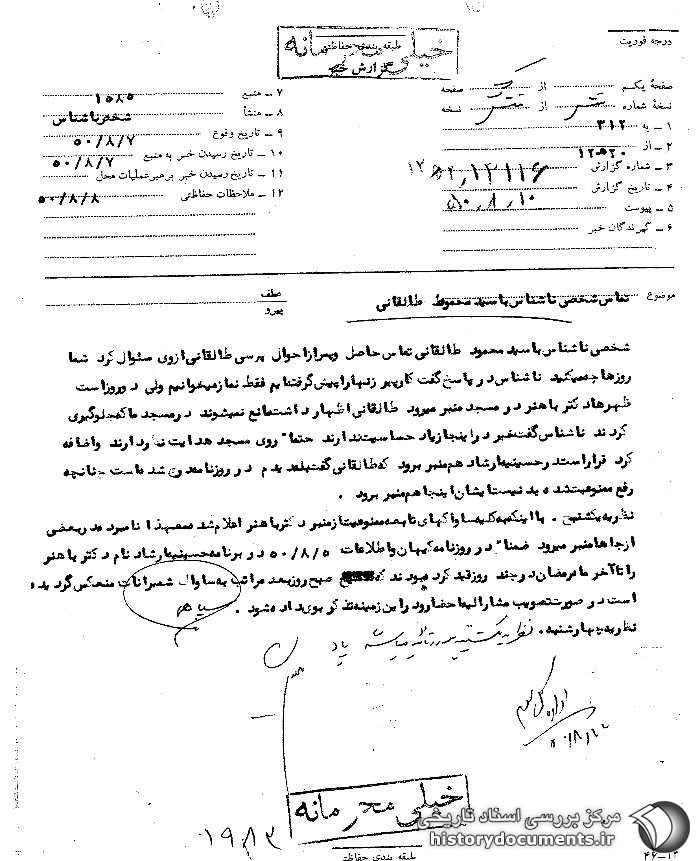 درجه فوریت
طبقه بندی حفاظتی
خیلی محرمانه
گزارش خبر
صفحهٔ یکم از صفحه
نسخهٔ شماره از نسخه
۱ ـ به ۳۱۲
۲ ـ از ۲۰ ه ۱۲
۳ ـ شماره گزارش ۱۲۱۱۶
۴ ـ تاریخ گزارش ۵۰،۸،۱۰
۵ ـ پیوست
۶ ـ گیرندگان خبر
۷ ـ منبع ۱۵۸۵
۸ ـ منشأ شخص ناشناس
۹ ـ تاریخ وقوع ۵۰/۸/۷
۱۰ ـ تاریخ رسیدن خبر به منبع ۵۰/۸/۷
۱۱ ـ تاریخ رسیدن خبر برهبر عملیات محل
۱۲ ـ ملاحظات حفاظتی ۵۰/۸/۸
موضوع تماس شخصی ناشناس با سید محمود طالقانی
عطف
پیرو
شخصی ناشناس با سید محمود طالقانی تماس حاصل و پس از احوال پرسی طالقانی از وی سئوال کرد شما
روزها چه میکنید ناشناس در پاسخ گفت کار پیر زنها را پیش گرفته‌ایم فقط نماز میخوانیم ولی دو روز است
ظهرها دکتر باهنر در مسجد منبر میرود طالقانی اظهار داشت مانع نمیشوند در مسجد ما که جلوگیری
کردند ناشناس گفت خیر در اینجا زیاد حساسیت ندارند حتما" روی مسجد هدایت نظر دارند و اضافه
کرد قرار است در حسینیه ارشاد هم منبر برود که طالقانی گفت بله دیدم در روزنامه درج شده است چنانچه
رفع ممنوعیت شده بد نیست ایشان اینجا هم منبر برود .
نظریه یکشنبه . با اینکه به کلیه ساواکهای تابعه ممنوعیت از منبر دکتر باهنر اعلام شده معهذا نامبرده در بعضی
از جاها منبر میرود ضمنا" در روزنامه کیهان و اطلاعات ۵۰/۸/۵ در برنامه حسینیه ارشاد نام دکتر باهنر
را تا آخر ماه رمضان در چند روز قید کرده بودند که صبح روز بعد مراتب به ساواک شمیرانات منعکس گردیده
است در صورت تصویب مشارالیه احضار و در این زمینه تذکر بوی داده شود .
نظریه چهارشنبه . نظریه یکشنبه مورد تائید میباشد
اداره کل سوم
خیلی محرمانه
طبقه بندی حفاظتی
۱۹۸۳
۴۶-۱۲
مرکز بررسی اسناد تاریخی
historydocuments.ir